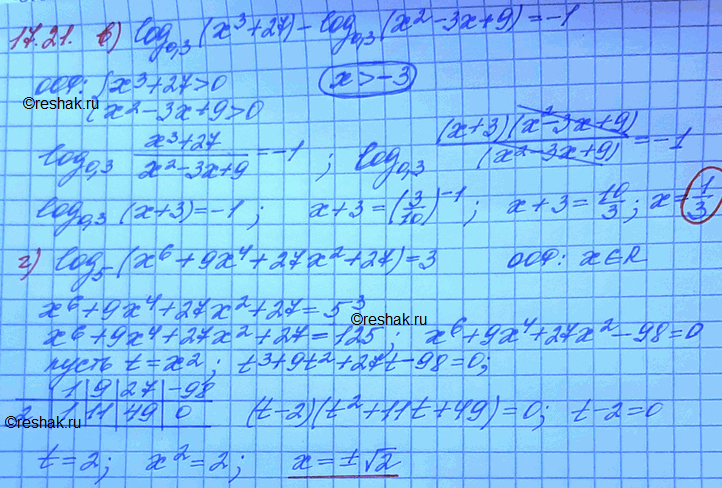 17.21. в) log₀,₃(x³+27)-log₀,₃(x²-3x+9)=-1
ООФ: {x³+27>0 x>-3
{x²-3x+9>0
©reshak.ru
log₀,₃ (x³+27)/(x²-3x+9)=-1; log₀,₃ ((x+3)(x²-3x+9))/(x²-3x+9)=-1
log₀,₃(x+3)=-1; x+3=(3/10)⁻¹; x+3=10/3; x=1/3
г) log₅(x⁶+9x⁴+27x²+27)=3 ООФ: x∈R
x⁶+9x⁴+27x²+27=5³
©reshak.ru
x⁶+9x⁴+27x²+27=125; x⁶+9x⁴+27x²-98=0
пусть t=x²; t³+9t²+27t-98=0;
| 1 | 9 | 27 | -98
2 | 1 | 11 | 49 | 0 (t-2)(t²+11t+49)=0; t-2=0
©reshak.ru
t=2; x²=2; x=±√2